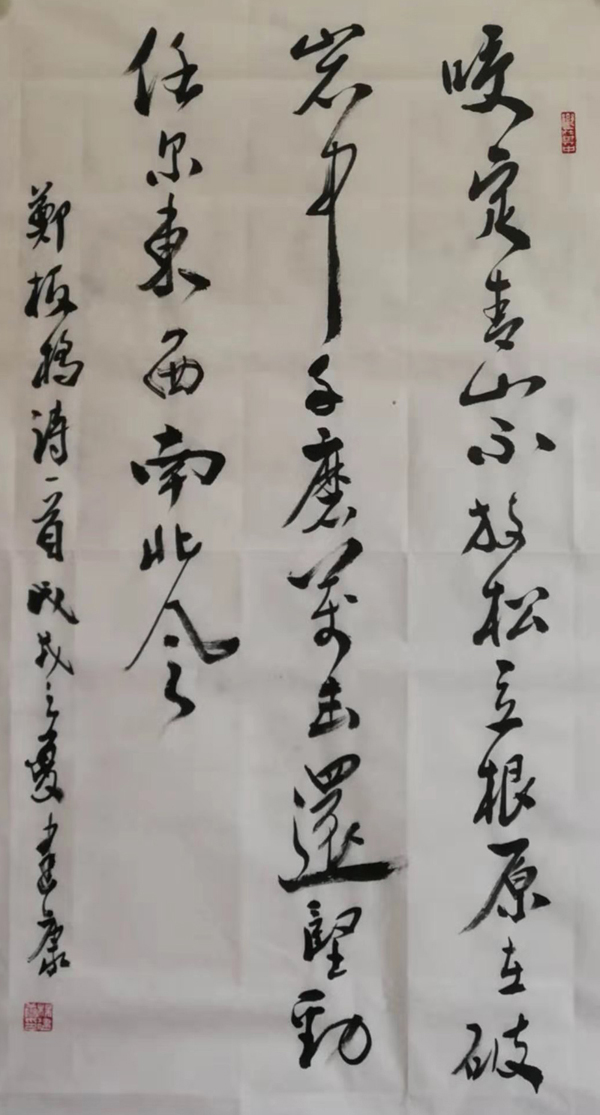 咬定青山不放松立根原在破
岩中千磨萬击還堅勁
任尔東西南北风
鄭板橋詩一首戊戌之夏建康